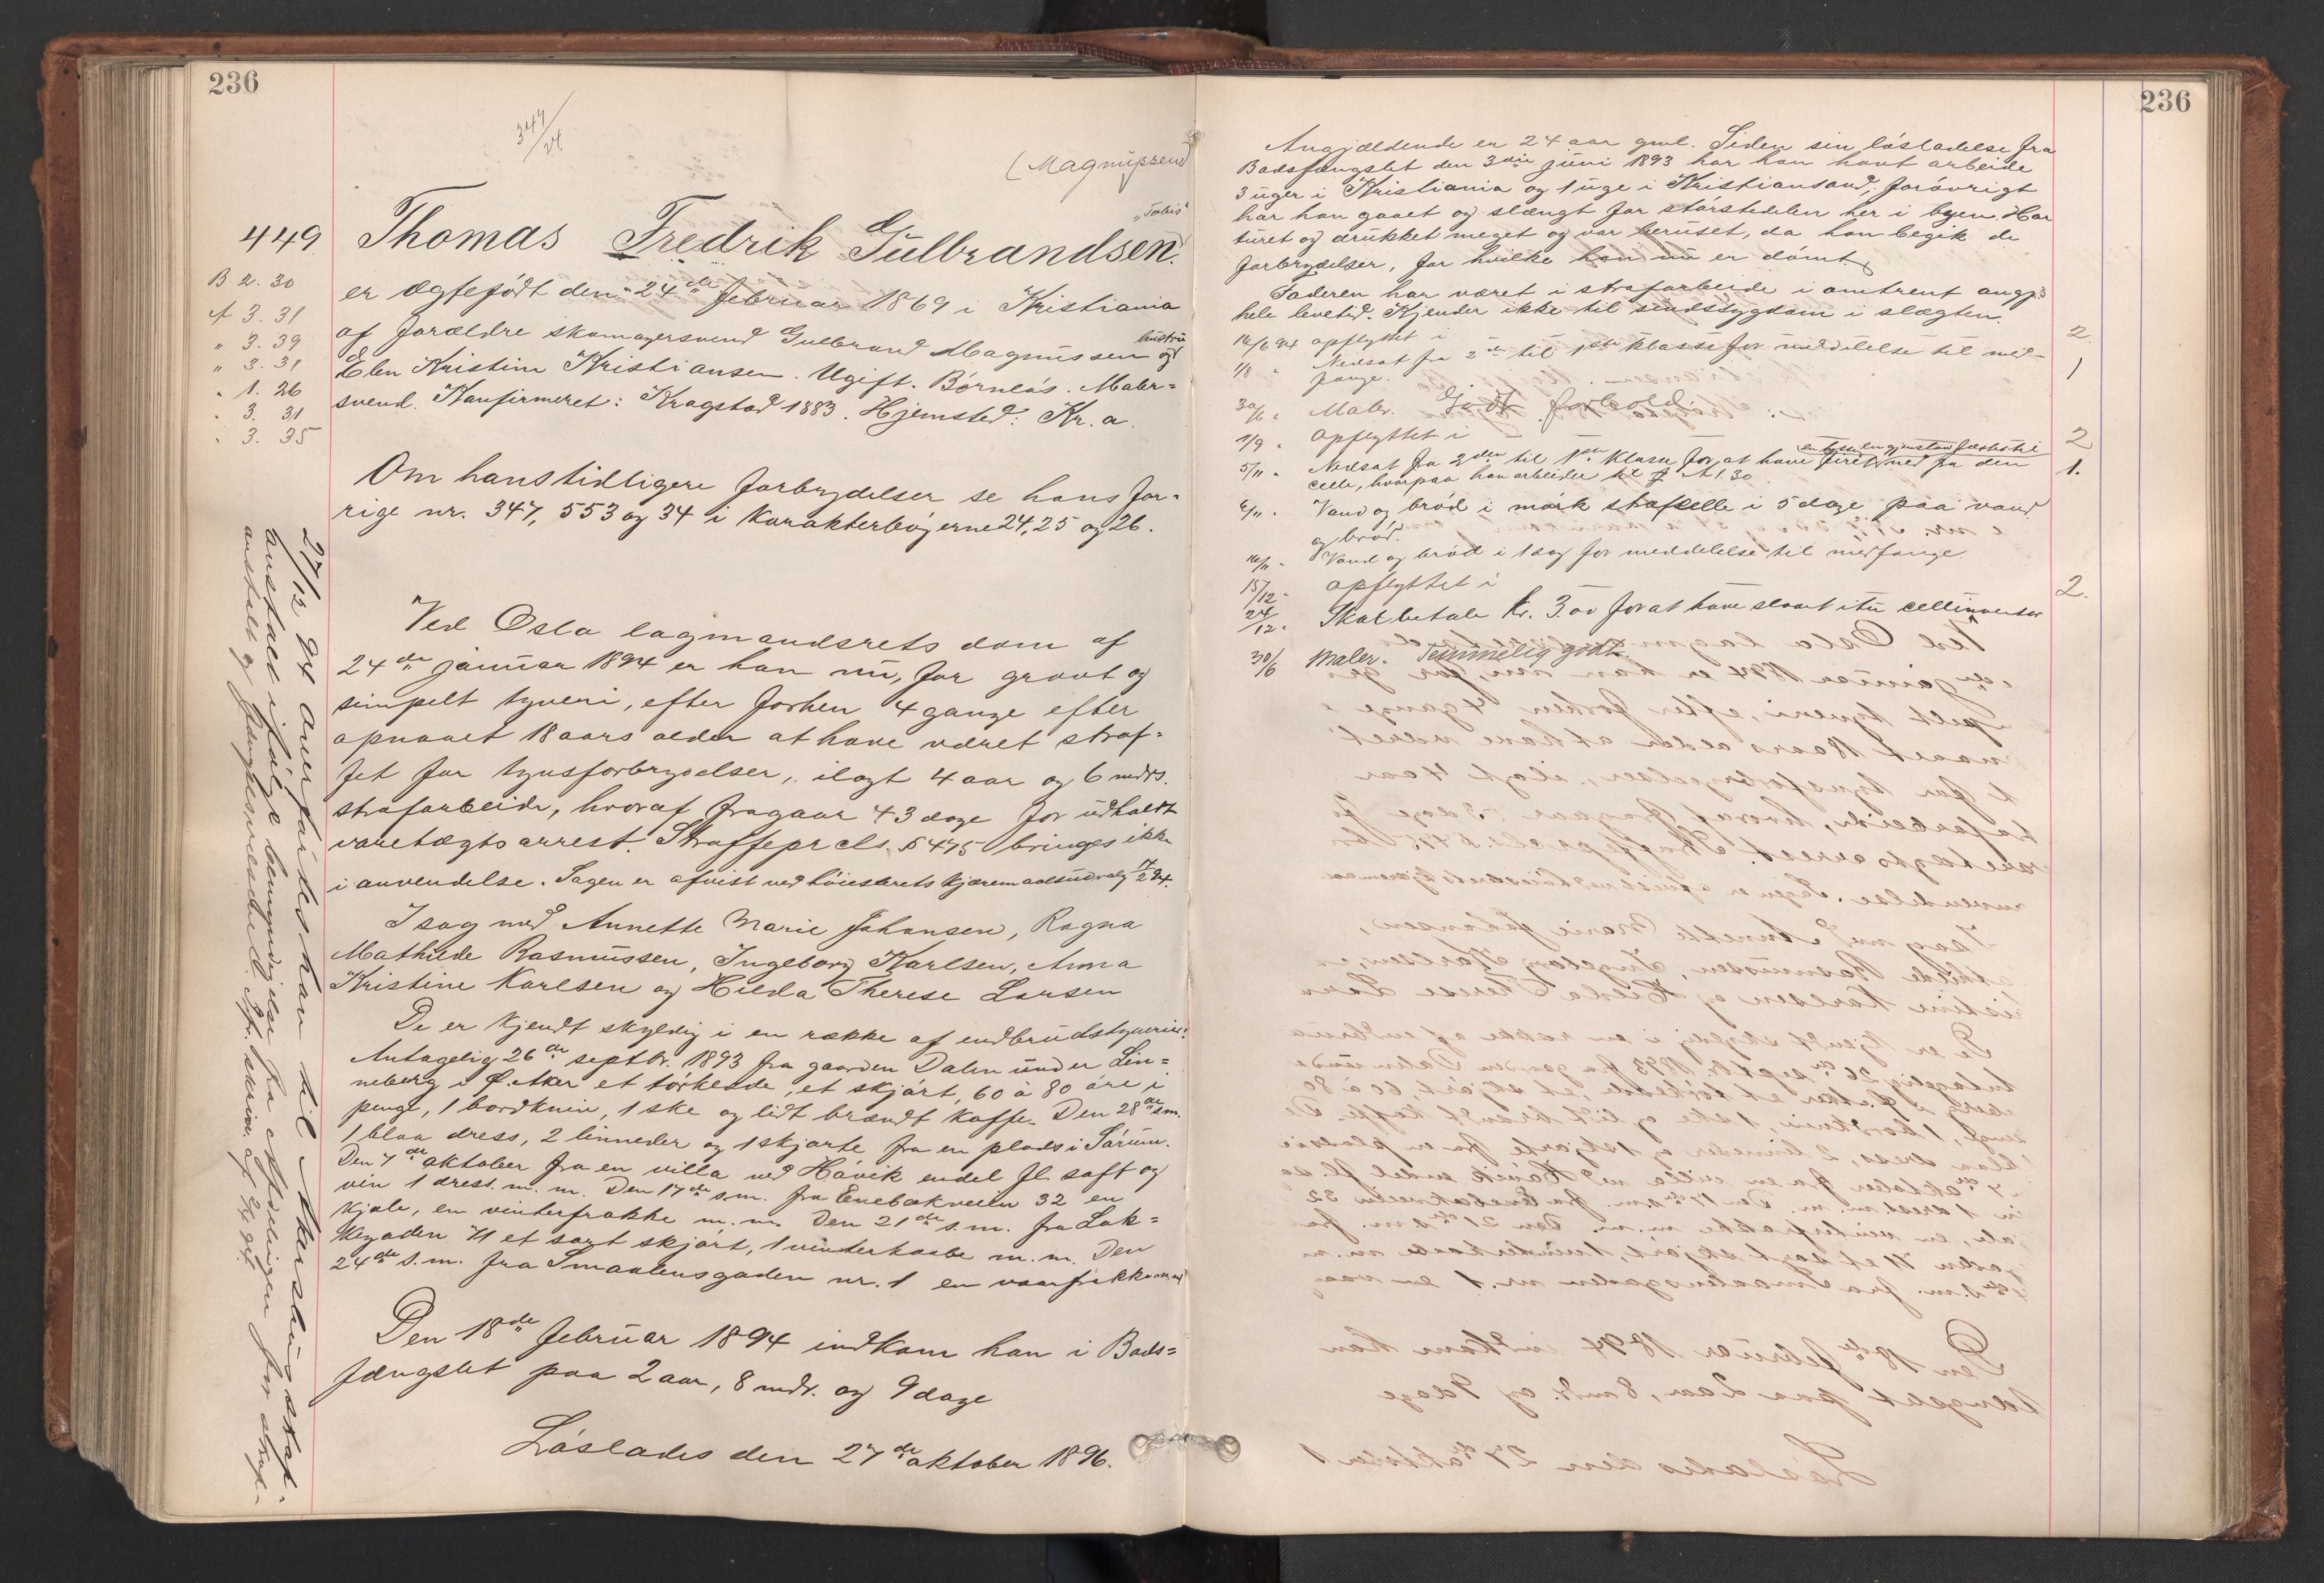 236
347/24
(Magnussen)
"Tobis"
449. Thomas Fredrik Gulbrandsen.
B 2. 30
A 3. 31
" 3. 39
" 3. 31
" 1. 26
" 3. 31
" 3. 35
er ægtefødt den 24de februar 1869 i Kristiania
af forældre skomagersvend Gulbrand Magnussen og hustru
Elen Kristine Kristiansen. Ugift. Børnløs. Maler=
svend. Konfirmeret: Kragstad 1883. Hjemsted: Kr.a.
Om hans tidligere forbrydelser se hans for=
rige nr. 347, 553 og 34 i karakterbøgerne 24, 25 og 26.
Ved Oslo lagmandsrets dom af
24de januar 1894 er han nu, for grovt og
simpelt tyveri, efter forhen 4 gange efter
opnaaet 18 aars alder at have været straf=
fet for tyvsforbrydelser, ilagt 4 aar og 6 mdrs.
strafarbeide, hvoraf fragaar 43 dage for udholdt
varetægtsarrest. Straffeprcls. § 475 bringes ikke
i anvendelse. Sagen er afvist ved høiesterets kjæremaalsudvalg 17/2 94.
I sag med Annette Marie Johansen, Ragna
Mathilde Rasmussen, Ingeborg Karlsen, Anna
Kristine Karlsen og Hilda Therese Larsen
De er kjendt skyldig i en række af indbrudstyverier:
Antagelig 26de septbr. 1893 fra gaarden Dalen under Lin=
neberg i Ø. Aker et tørklæde, et skjørt, 60 à 80 øre i
penge, 1 bordkniv, 1 ske og lidt brændt kaffe. Den 28de s.m.
1 blaa dress, 2 linneder og 1 skjorte fra en plads i Sørum.
Den 7de oktober fra en villa ved Høvik endel fl. saft og
vin 1 dress. m. m. Den 17de s.m. fra Enebakveien 32 en
kjole, en vinterfrakke m. m. Den 21de s.m. fra Lak=
kegaden 71 et sort skjørt, 1 vinterkaabe m. m. Den
24de s.m. fra Smaalensgaden nr. 1 en vaarfrakke m.m.
Den 18de februar 1894 indkom han i Bods=
fængslet paa 2 aar, 8 mdr. og 9 dage
Løslades den 27de oktober 1896.
27/12 94 overførtes han til Akershus straf-
anstalt ifølge bemyndigelse fra afdelingen for straf-
anstalt og Skriv. af
236
Angjældende er 24 aar gml. Siden sin løsladelse fra
Bodsfængslet den 3die juni 1893 har han havt arbeide
3 uger i Kristiania og 1 uge i Kristiansand; forøvrigt
har han gaaet og slængt for størstedelen her i byen. Har
turet og drukket meget og var beruset, da han begik de
forbrydelser, for hvilke han nu er dømt.
Faderen har været i strafarbeide i omtrent angj.s
hele levetid. Kjender ikke til sindssygdom i slægten.
16/6 94 opflyttet i 2.
1/8 " Nedsat fra 2den til 1ste klasse for meddelelse til med- 1
fange.
30/6 " Maler. Godt forhold
1/9 " opflyttet i 2
5/11 " Nedsat fra 2den til 1ste klasse for at have firet ned fra den 1.
celle, hvorpaa han arbeider til A 1.30
6/11 " Vand og brød i mørk strafcelle i 5 dage paa vand
og brød.
16/11 " Vand og brød i 1 dag for meddelelse til medfange.
15/12 " opflyttet i 2.
24/12 " Skal betale kr. 3.00 for at have slaaet itu celleinventar
30/6 Maler. Temmelig godt